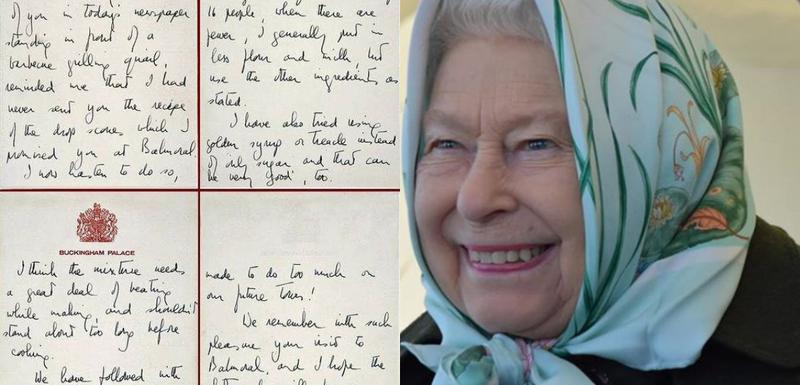 of you in today's newspaper
standing in front of a
barbecue grilling quail,
reminded me that I had
never sent you the recipe
of the drop scones which I
promised you at Balmoral.
I now hasten to do so,
16 people, when there are
fewer, I generally put in
less flour and milk, but
use the other ingredients as
stated.
I have also tried using
golden syrup or treacle instead
of only sugar and that can
be very good, too.
BUCKINGHAM PALACE
I think the mixture needs
a great deal of beating
while making, and shouldn't
stand about too long before
cooking.
We have followed with
made to do too much on
our future Tours!
We remember with such
pleasure your visit to
Balmoral, and I hope the